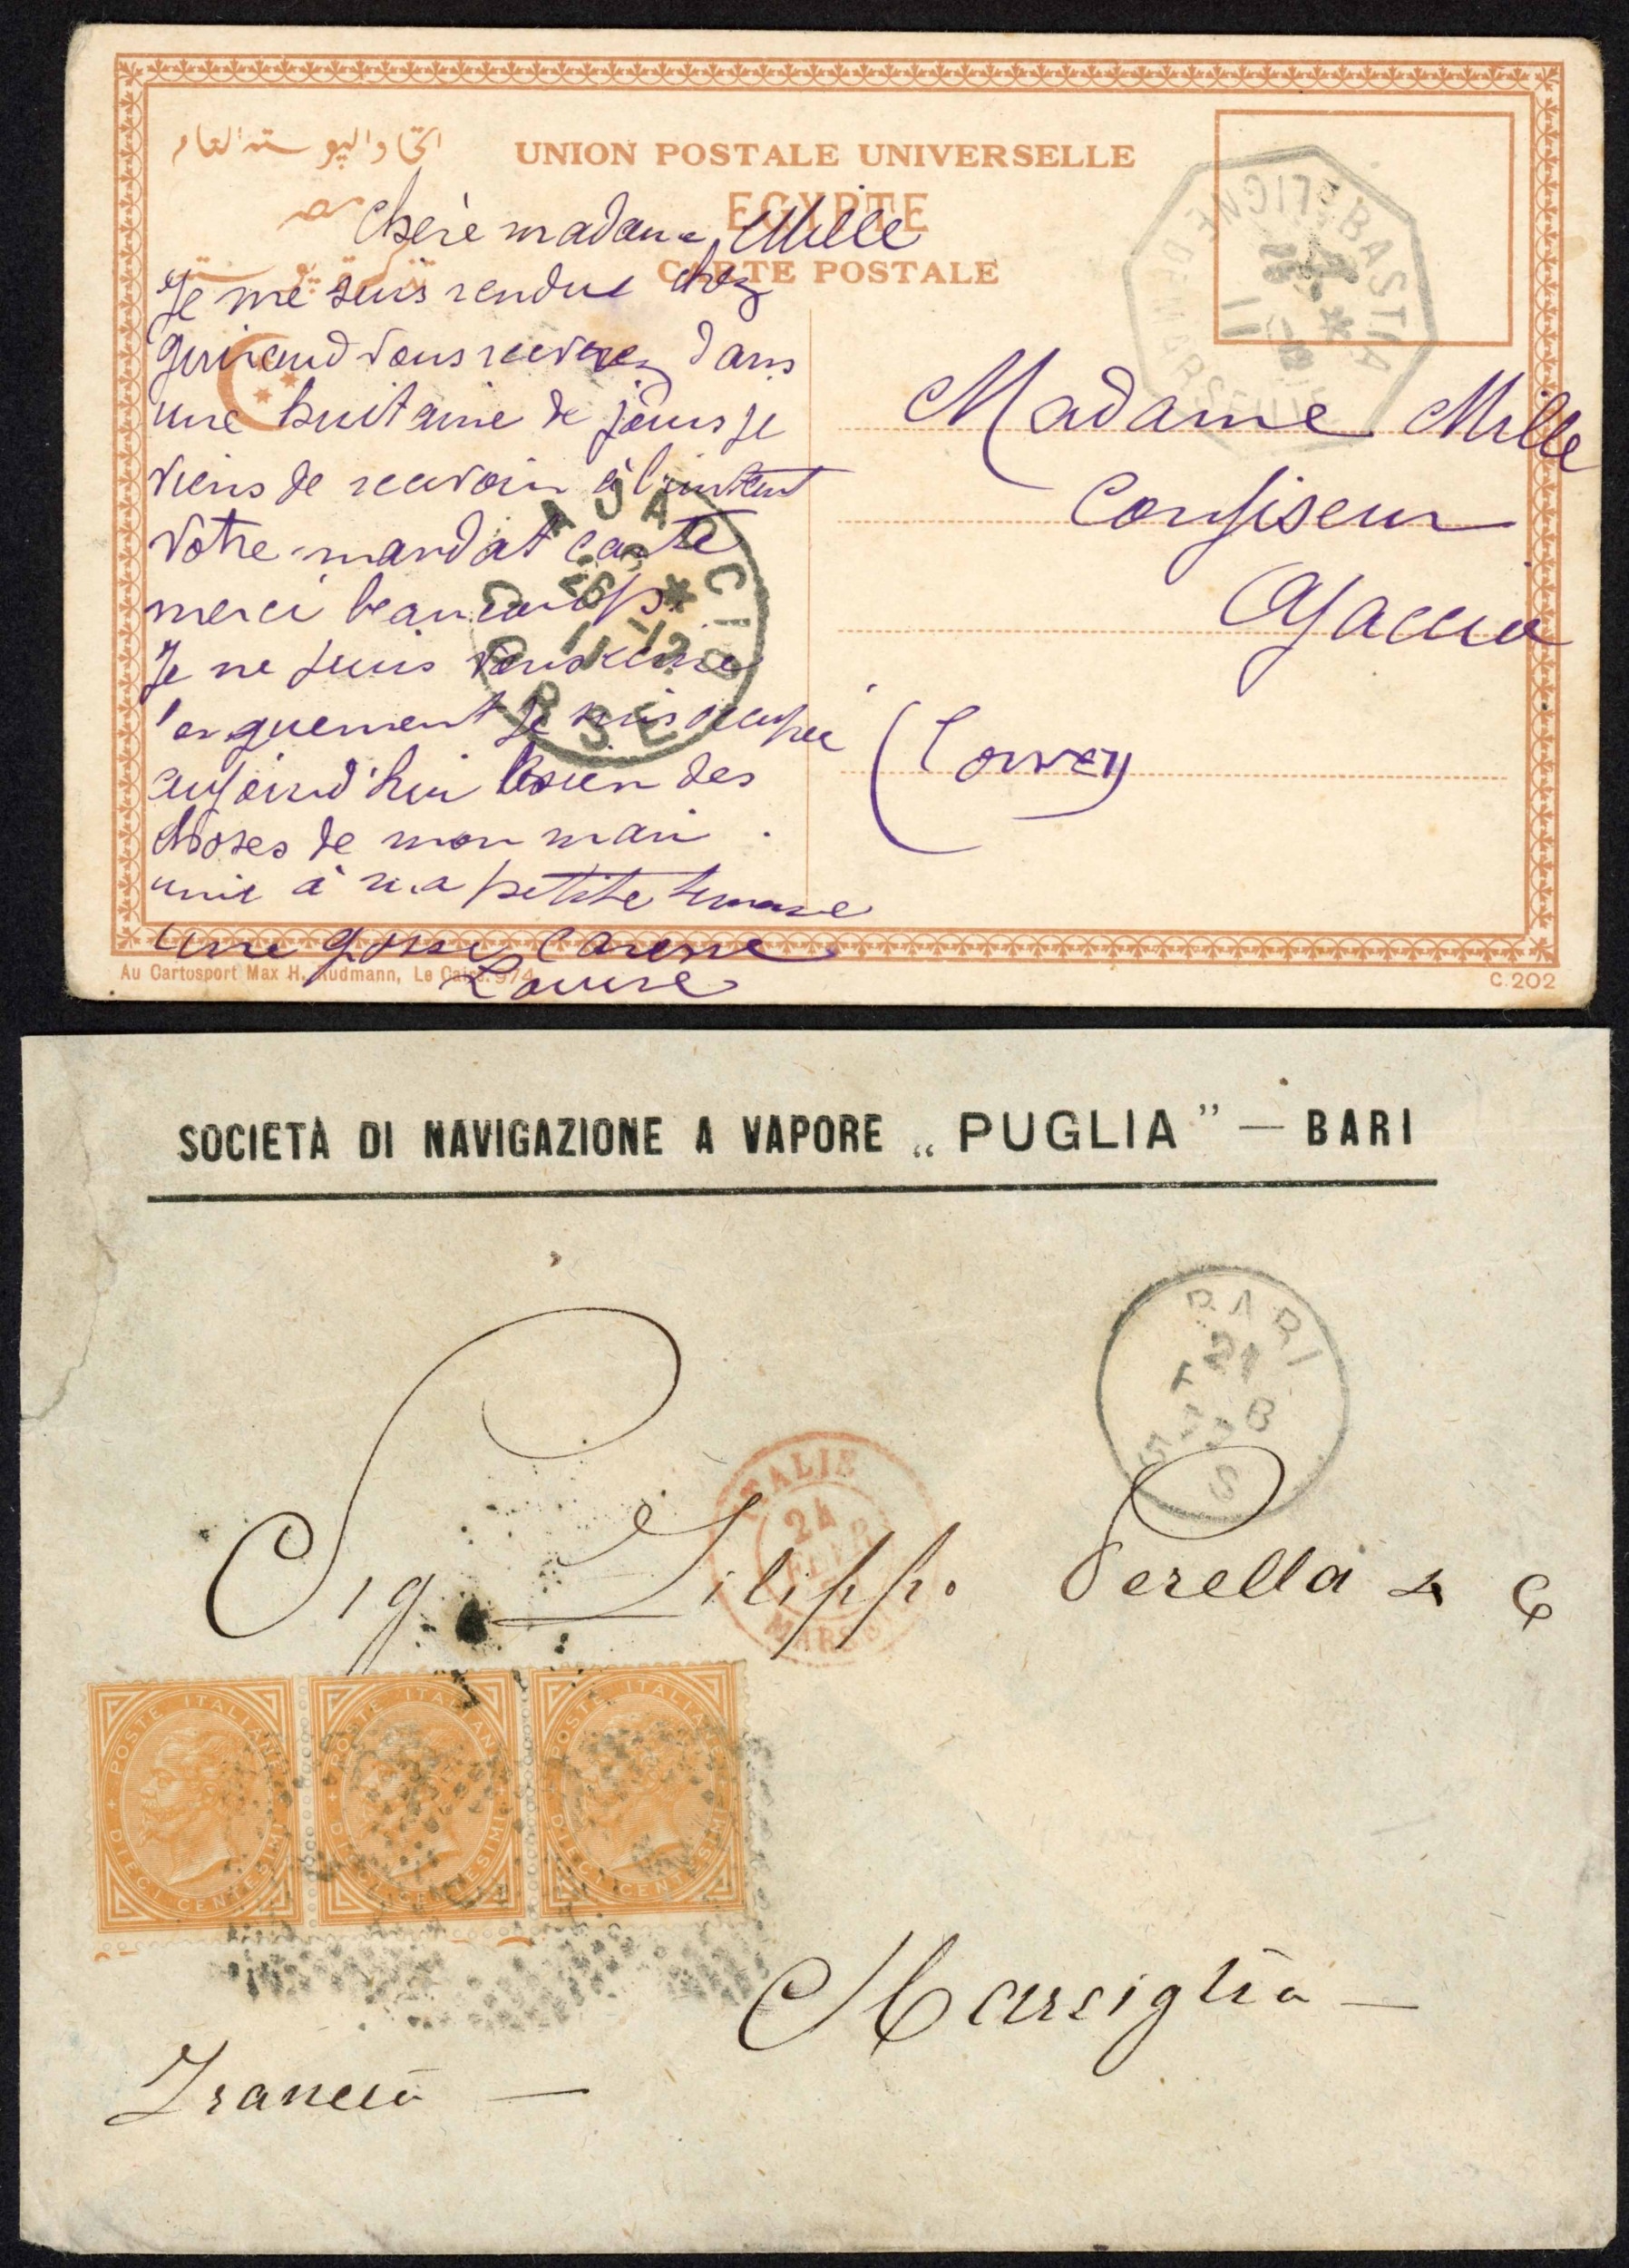 اتحاد البوسته العام
UNION POSTALE UNIVERSELLE
مصر
EGYPTE
CARTE POSTALE
Chère madame Mille
Je me suis rendue chez
vous recevrez dans
une huitaine de jours je
viens de recevoir à l'instant
votre mandat carte
merci beaucoup
Je ne puis
longuement je suis occupée
aujourd'hui bien des
choses de mon mari
unie à ma petite
une grosse caresse
Louise
Madame Mille
Confiseur
Ajaccio
(Corse)
BASTIA
LIGNE DE MARSEILLE
11
AJACCIO
26
11-12
CORSE
Au Cartosport Max H. Rudmann, Le Caire. 974
C. 202
SOCIETÀ DI NAVIGAZIONE A VAPORE „PUGLIA” — BARI
BARI
21
5 S
ITALIE
24
FEVR
MARSEILLE
Sig. Filippo Perella & C
POSTE ITALIANE
DIECI CENTESIMI
POSTE ITALIANE
DIECI CENTESIMI
POSTE ITALIANE
DIECI CENTESIMI
Marsiglia —
Francia —